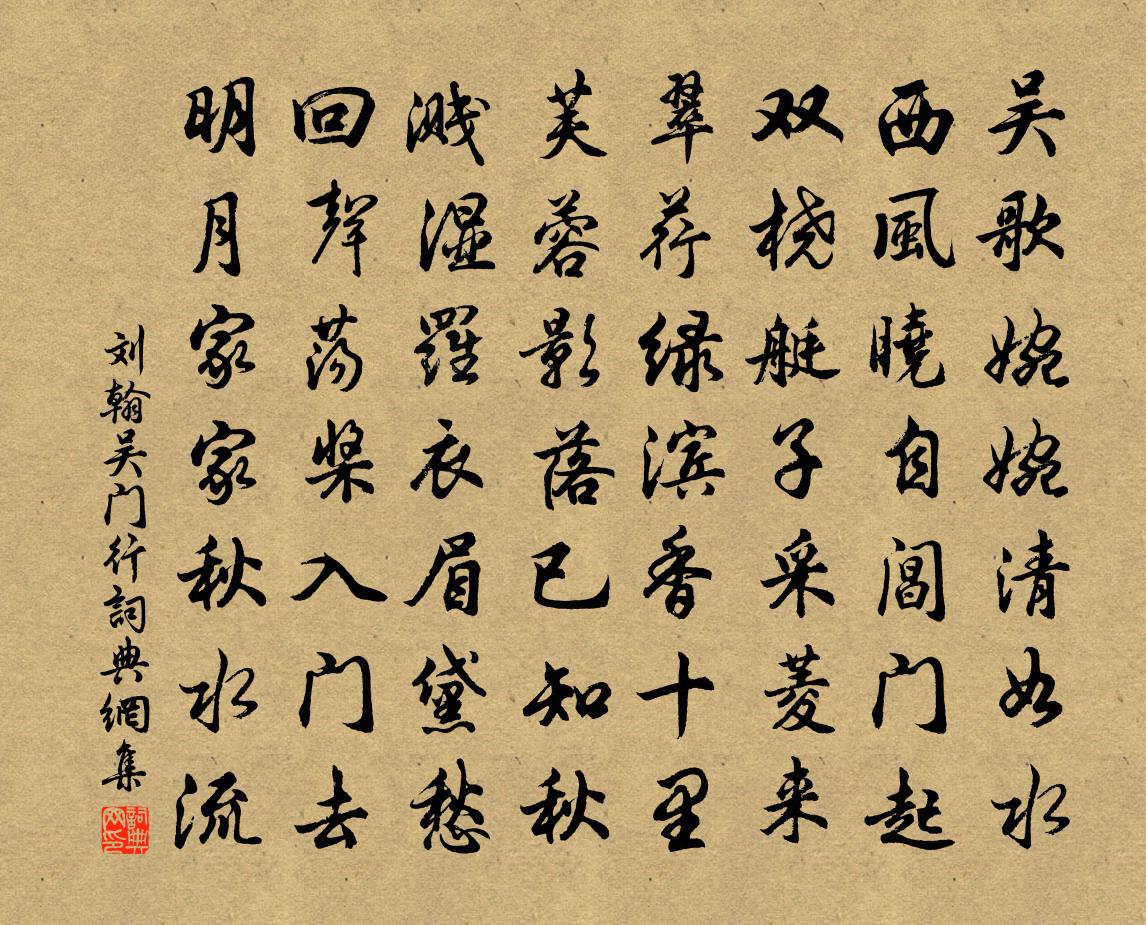 吴歌婉婉清如水
西風曉自阊门起
双桡艇子采菱来
翠荇绿滨香十里
芙蓉影落已知秋
溅湿羅衣眉黛愁
回聲荡桨入门去
明月家家秋水流
刘翰吴门行詞典網集
詞典网印